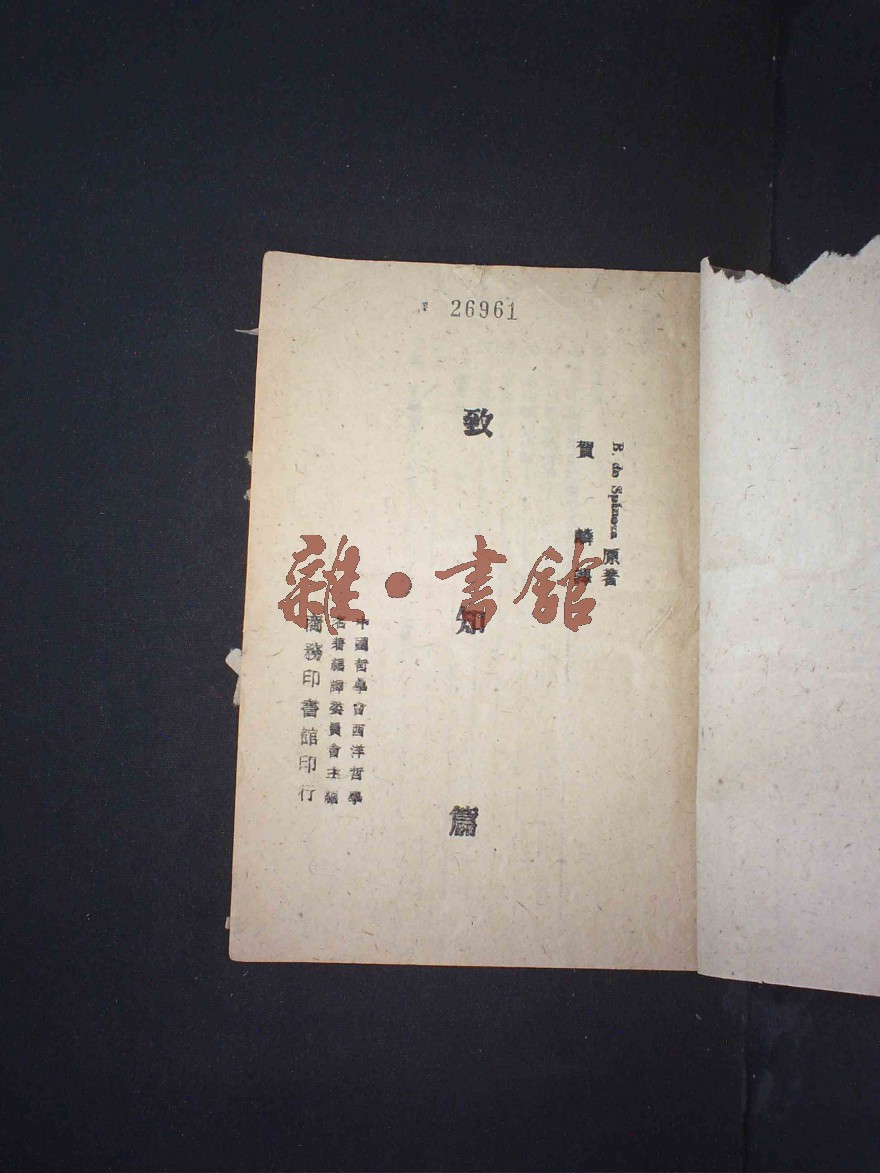 26961
B. de Spinoza 原著
賀麟譯
致知篇
中國哲學會西洋哲學
名著編譯委員會主編
商務印書館印行
雜·書館